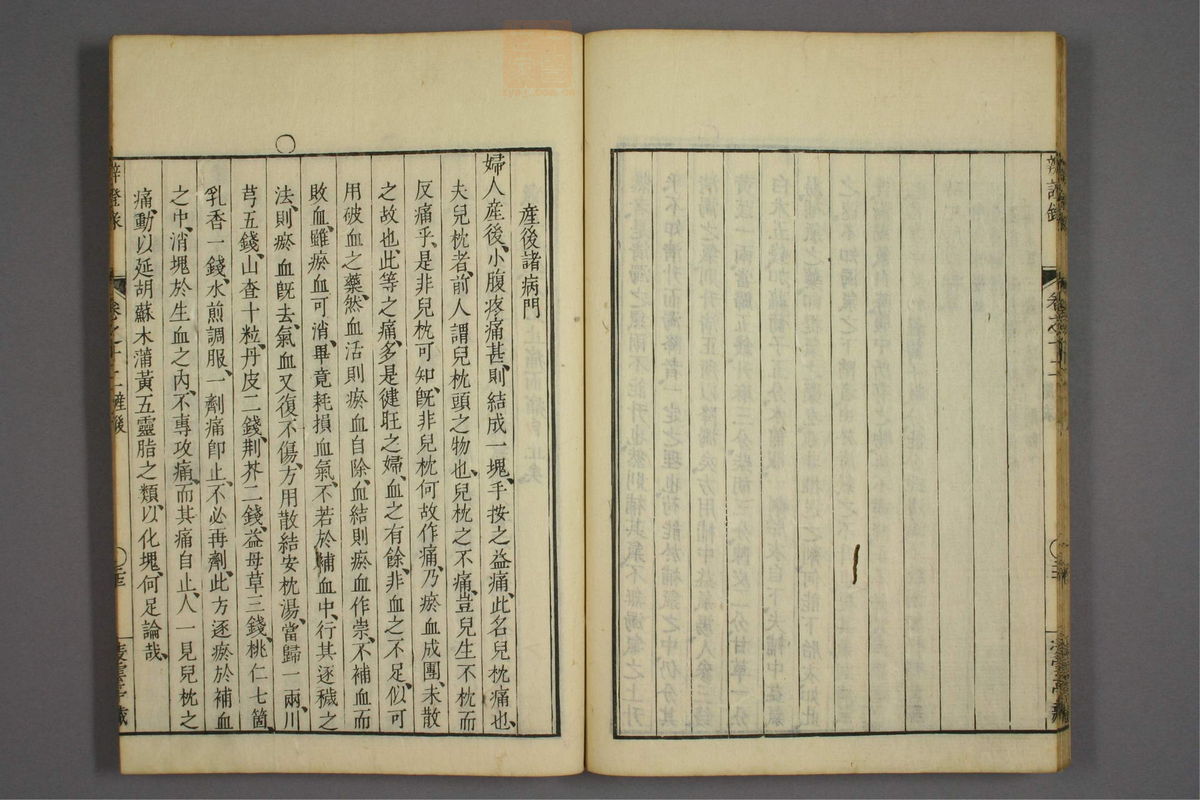 產後諸病門
婦人產後、小腹疼痛甚、則結成一塊、手按之益痛、此名兒枕痛也、
夫兒枕者、前人謂兒枕頭之物也、兒枕之不痛、豈兒生不枕而
反痛乎、是非兒枕可知、旣非兒枕何故作痛、乃瘀血成團、未散
之故也、此等之痛、多是健旺之婦、血之有餘、非血之不足、似可
用破血之藥、然血活則瘀血自除、血結則瘀血作祟、不補血而
敗血、雖瘀血可消、畢竟耗損血氣、不若於補血中、行其逐穢之
法、則瘀血旣去、氣血又復不傷、方用散結安枕湯、當歸一兩、川
芎五錢、山查十粒、丹皮二錢、荆芥二錢、益母草三錢、桃仁七箇、
乳香一錢、水煎調服、一劑痛卽止、不必再劑、此方逐瘀於補血
之中、消塊於生血之內、不專攻痛、而其痛自止、人一見兒枕之
痛、動以延胡蘇木蒲黃五靈脂之類、以化塊、何足論哉、